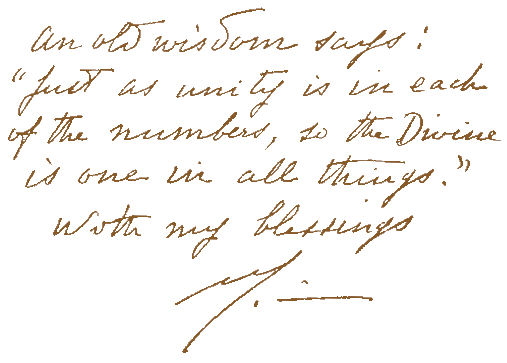 an old wisdom says:
"Just as unity is in each
of the numbers, so the Divine
is one in all things."
With my blessings
M.